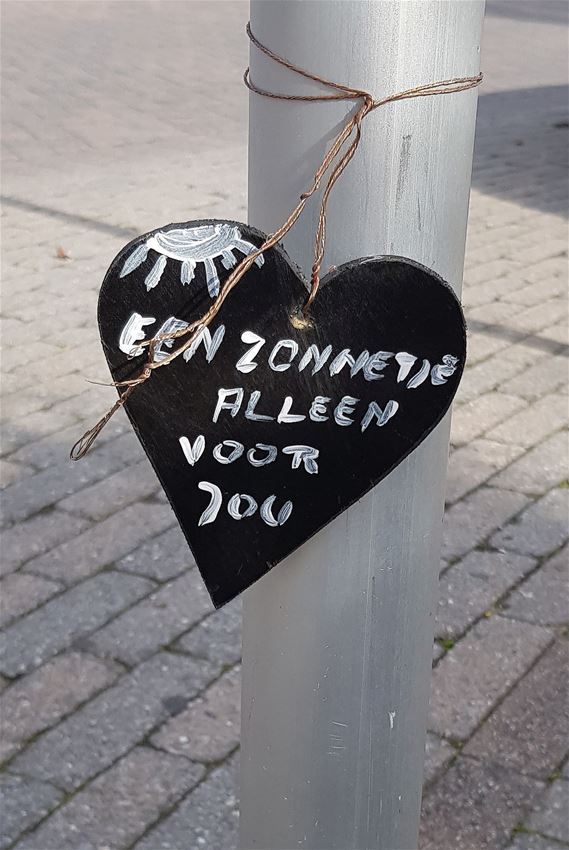 EEN ZONNETJE
ALLEEN
VOOR
JOU